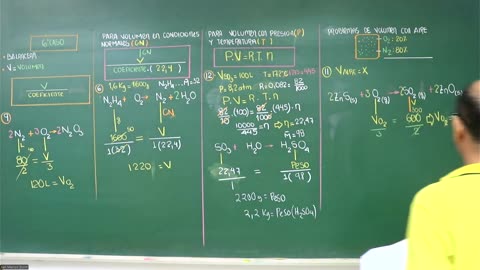 6°) CASO
• BALANCEAR
• V = VOLUMEN
V
COEFICIENTE
④
2N₂ + 3O₂ → 2N₂O₃
80/2 = V/3
120L = V O₂
PARA VOLUMEN EN CONDICIONES
NORMALES (CN)
V
COEFICIENTE · (22,4)
⑥ 1,6Kg = 1600g
M̄ = 32
N₂H₄ + O₂ → N₂ + 2H₂O
CN
1600/1(32) = V/1(22,4)
1220 = V
PARA VOLUMEN CON PRESION (P)
Y TEMPERATURA (T)
P.V = R.T.n
⑫ V SO₃ = 100L
T = 172°C
P = 8,2atm
R = 0,082 = 82/1000
P.V = R.T.n
82/10 (100) = 82/1000 (445) . n
10000/445 = n → n = 22,47
M̄ = 98
SO₃ + H₂O → H₂SO₄
22,47/1 = Peso/1(98)
2200g = Peso
2,2Kg = Peso (H₂SO₄)
PROBLEMAS DE VOLUMEN CON AIRE
O₂: 20%
N₂: 80%
⑪ V AIRE = X
V O₂/3 = 600/2 ⇒ V O₂ =